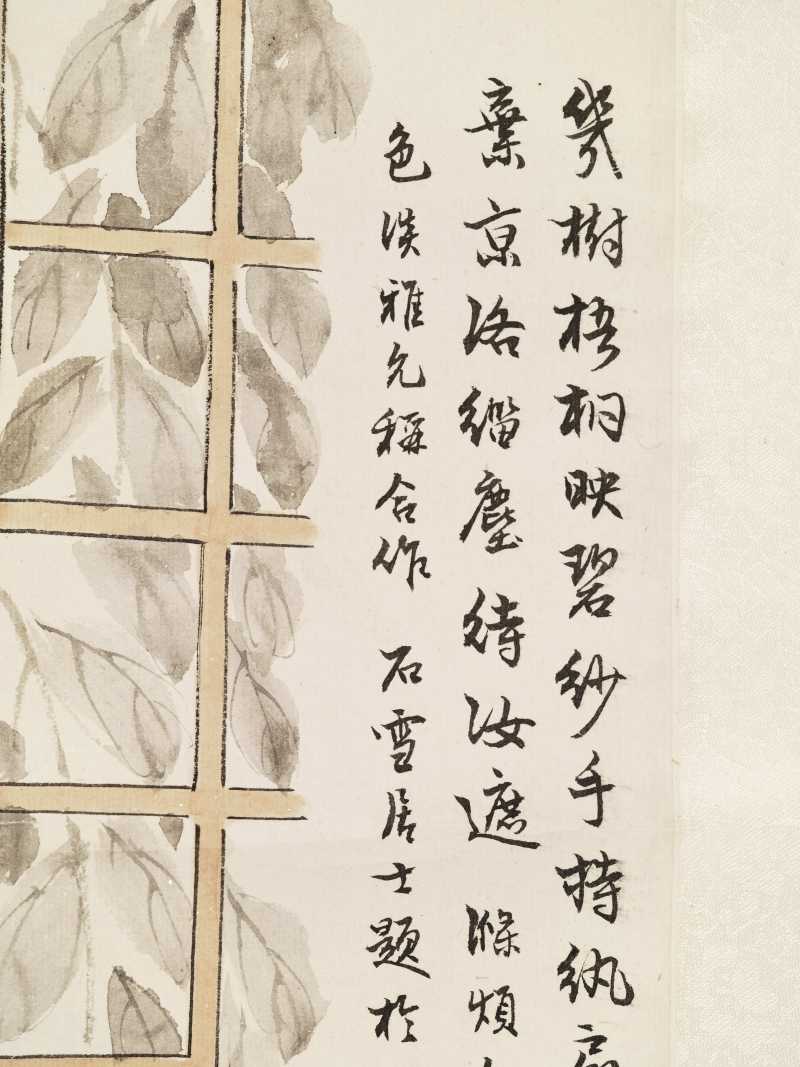 幾樹梧桐映碧紗手持紈
棄京洛緇塵待汝遮 滌煩
色淡雅允稱合作 石雪居士題於